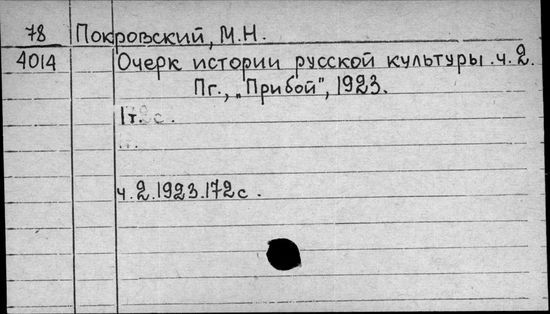 78 Покровский, М.Н.
4014 Очерк истории русской культуры. ч. 2.
Пг., „Прибой", 1923.
1т.
ч. 2. 1923. 172 с.